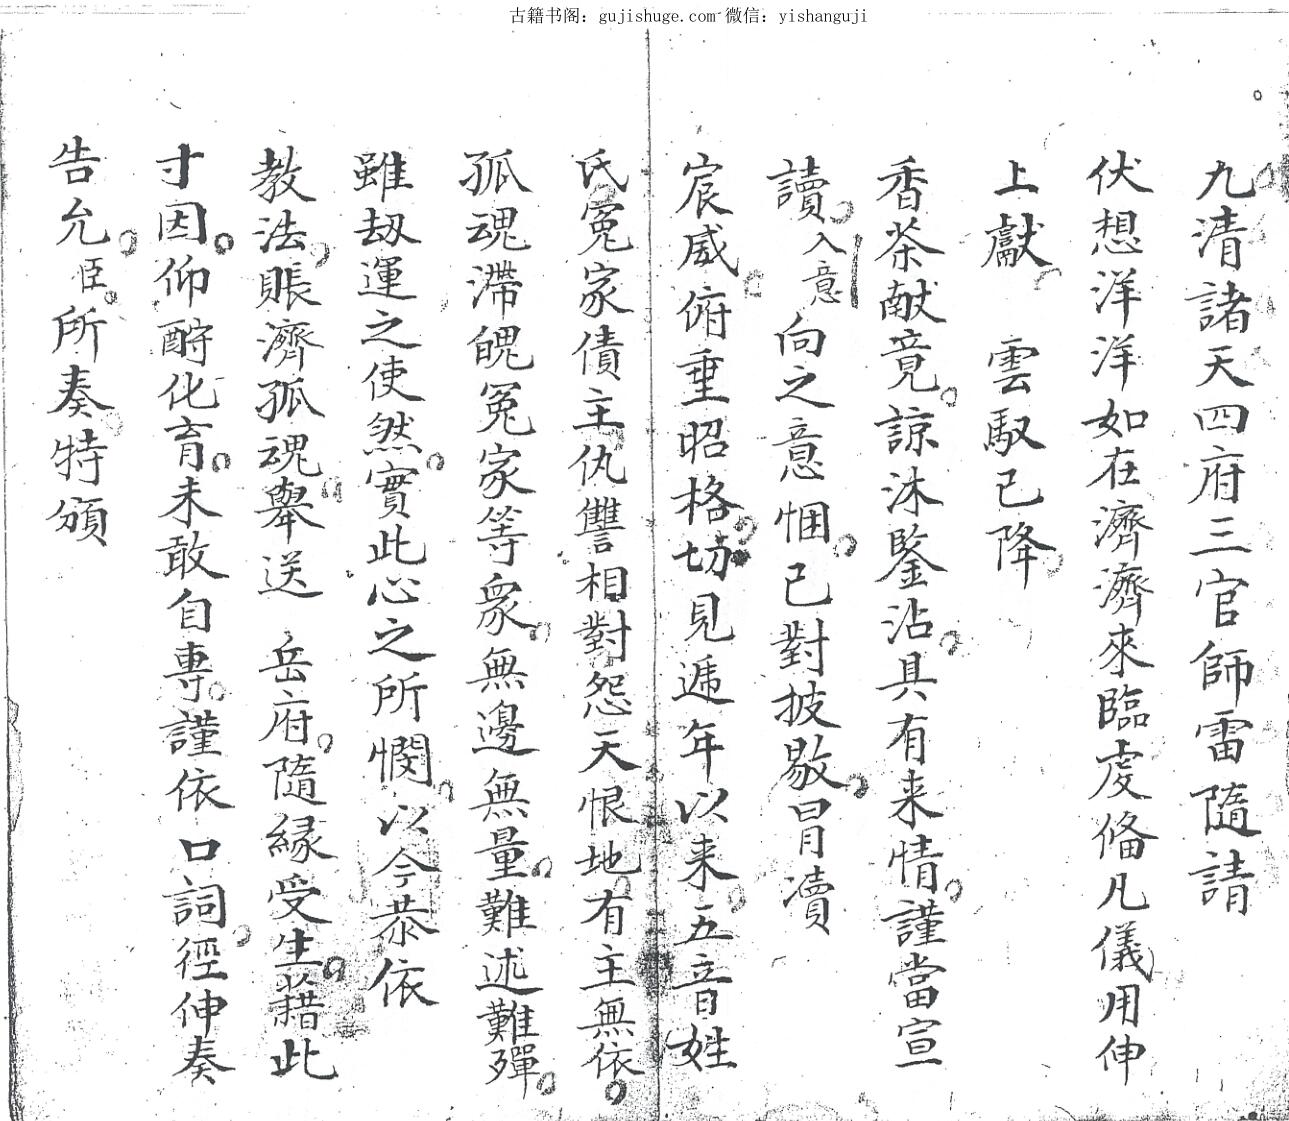 古籍书阁：gujishuge.com 微信：yishanguji
九清諸天四府三官師雷隨請
伏想洋洋如在濟濟來臨虔俻凡儀用伸
上獻　雲馭已降
香茶献竟諒沐鑒沾具有来情謹當宣
讀入意向之意悃已對披敭冒瀆
宸威俯垂昭格切見遞年以来五音姓
氏冤家債主仇讐相對怨天恨地有主無依
孤魂滯魄冤家等衆無邊無量難述難殫
雖刼運之使然實此心之所憫以今恭依
教法賬濟孤魂舉送　岳府隨緣受生藉此
寸因仰酧化育未敢自專謹依口詞徑伸奏
告允臣所奏特頒